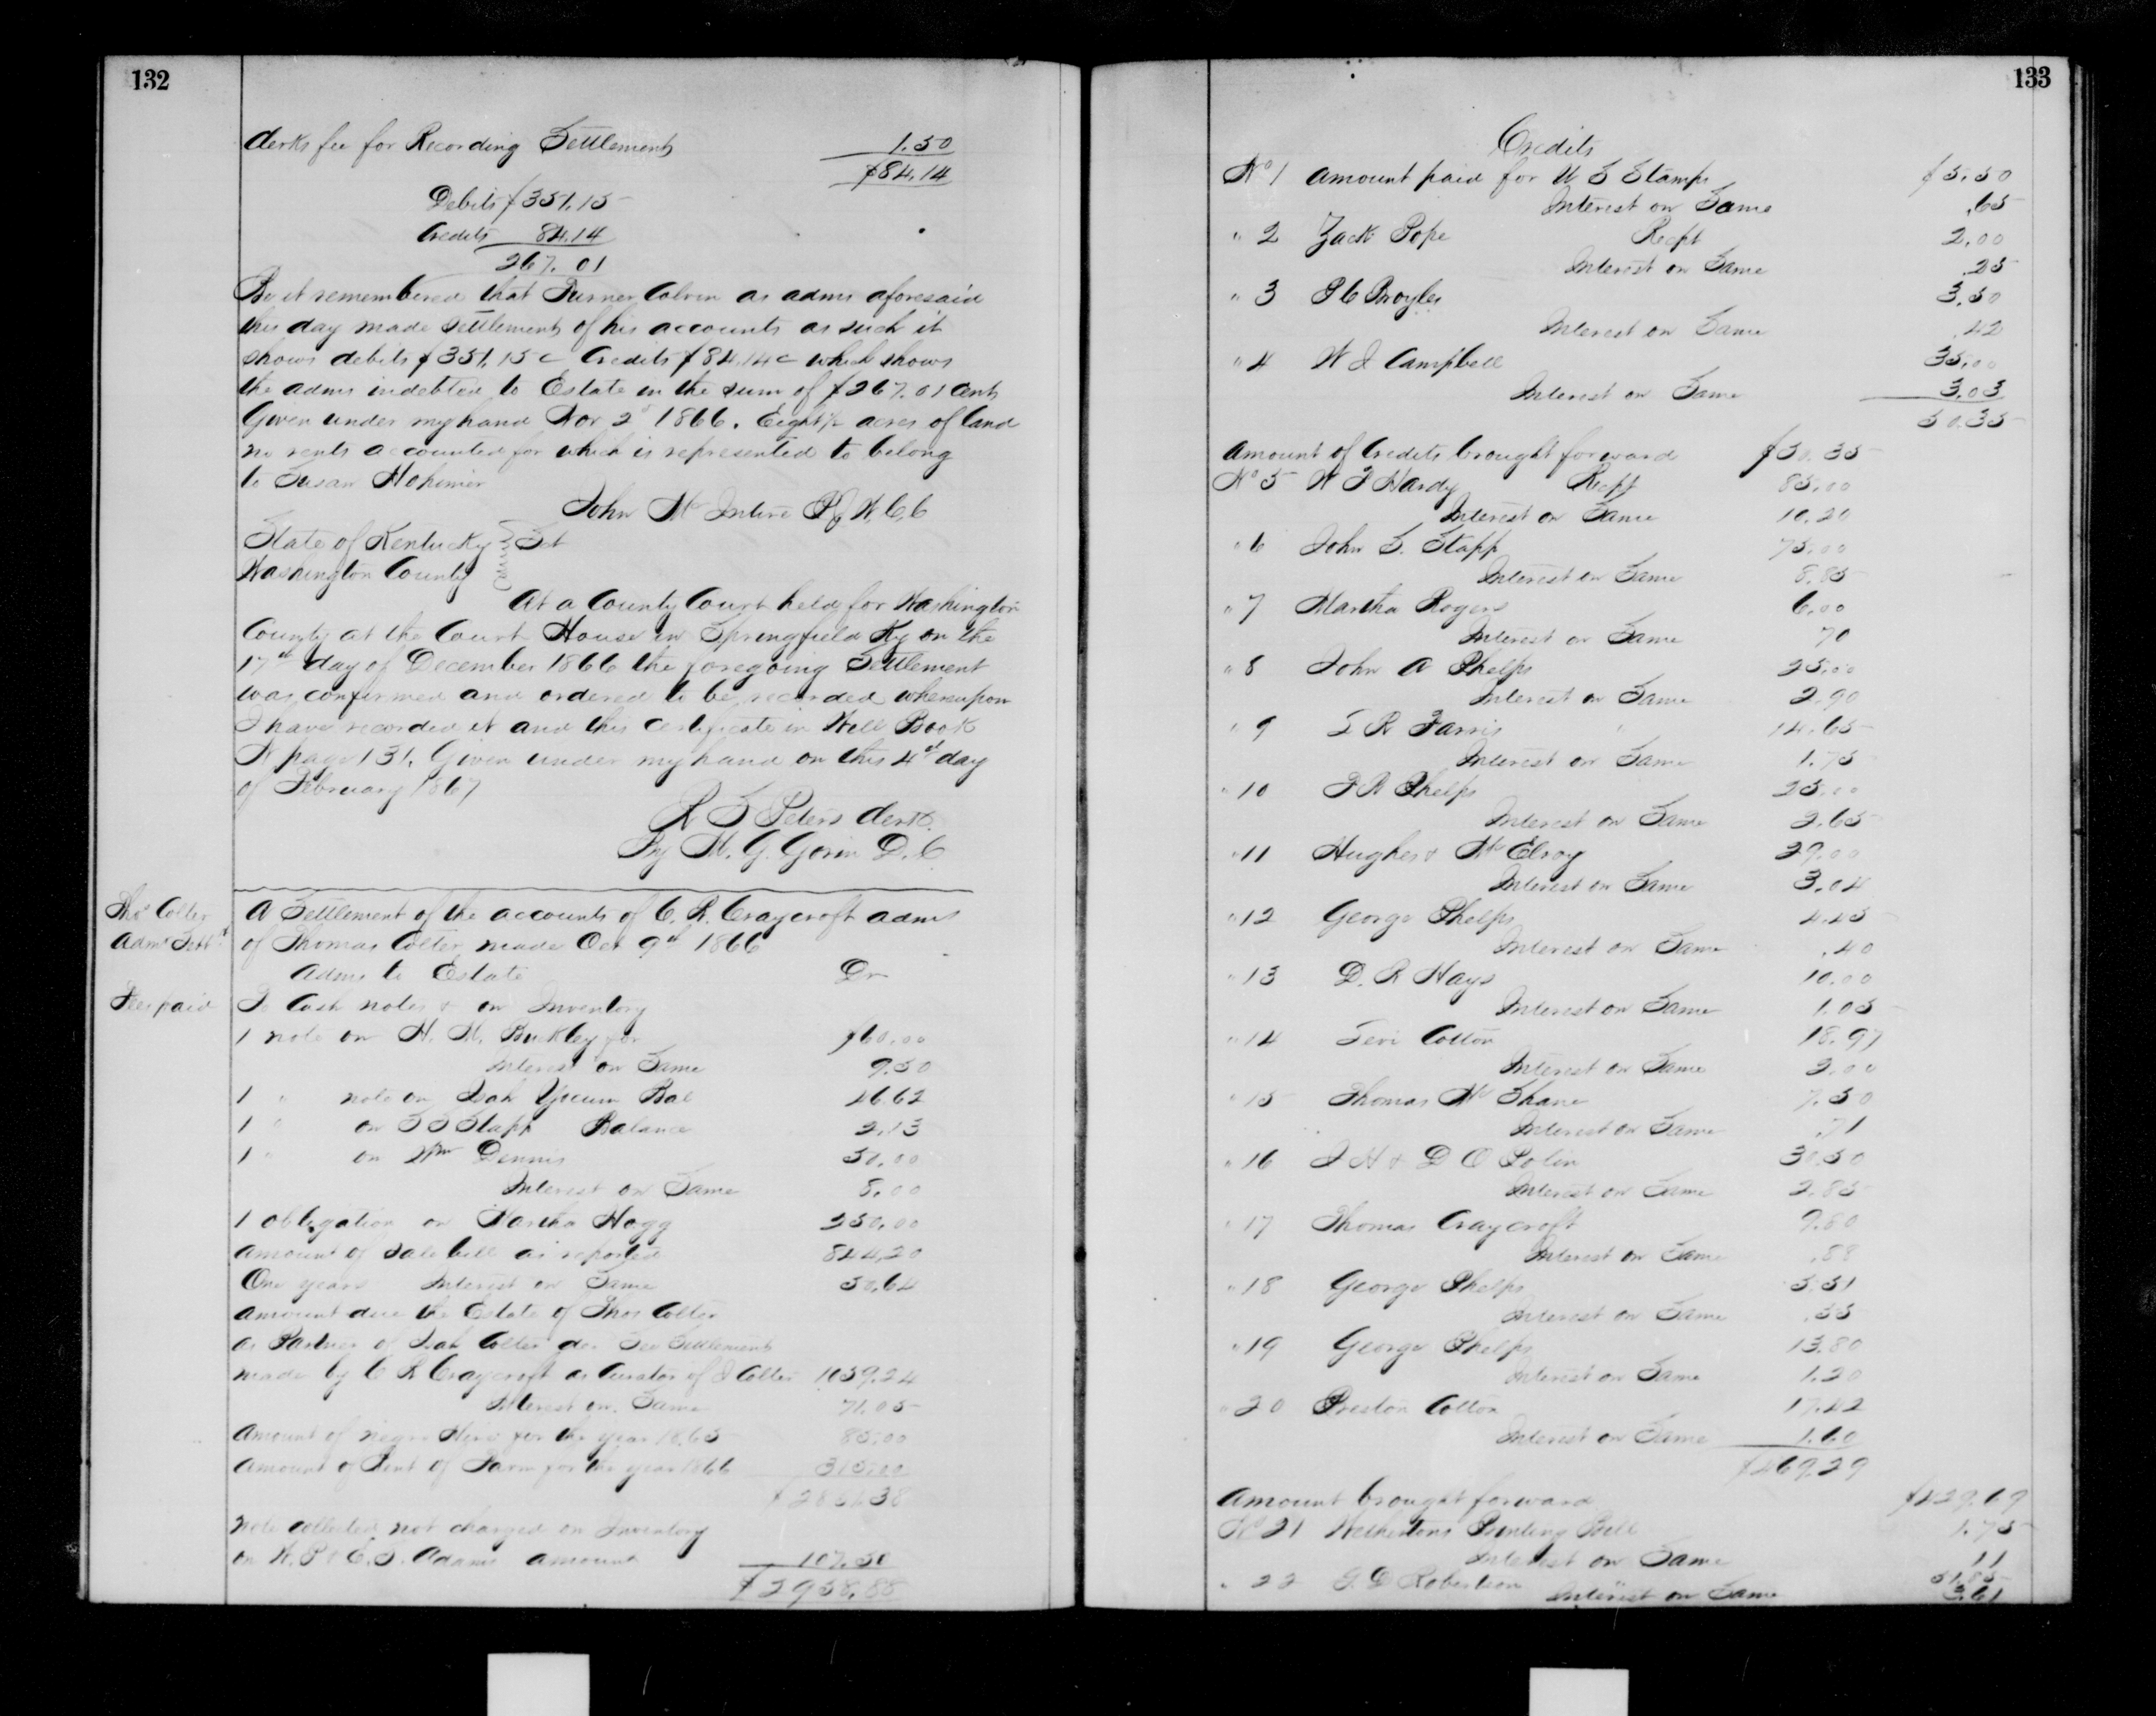 132
Clerks fee for Recording Settlement 1.50
$84.14
Debits $351.15
Credits 84.14
267.01
Be it remembered that Turner Colvin as admr aforesaid
this day made Settlement of his accounts as such it
shows debits $351.15c Credits $84.14c which shows
the admr indebted to Estate in the sum of $267.01 Cents
Given under my hand Nov 2d 1866. Eight acres of land
no rents accounted for which is represented to belong
to Susan
John McIntire P J W.C.C
State of Kentucky } Sct
Washington County }
At a County Court held for Washington
County at the Court House in Springfield Ky on the
17th day of December 1866 the foregoing Settlement
was confirmed and ordered to be recorded whereupon
I have recorded it and this certificate in Will Book
page 131. Given under my hand on this 4th day
of February 1867
R S Peters Clerk
By M. G. Gorin D.C
Thos Colter
Admr Settt
A Settlement of the accounts of C. R. Craycroft admr
of Thomas Colter made Oct 9th 1866
Admr to Estate Dr
Fees paid
To Cash notes & on Inventory
1 note on H. M. Buckley for $60.00
Interest on Same 9.50
1 " note on Isah Yocum Bal 46.62
1 " on Stapp Balance 2.13
1 " on Wm Dennis 50.00
Interest on Same 8.00
1 obligation on Martha Hagg 250.00
Amount of Sale bill as reported 844.20
One years Interest on Same 50.64
Amount due the Estate of Thos Colter
as Partner of Isah Colter dec See Settlement
made by C R Craycroft as Curator of I Colter 1059.24
Interest on Same 71.05
Amount of negro Hire for the year 1865 85.00
Amount of Rent of Farm for the year 1866 315.00
$2851.38
Note collected not charged on Inventory
on W. P & E. S. Adams amount 107.50
$2958.88
133
Credits
No 1 Amount paid for U S Stamps $5.50
Interest on Same .65
" 2 Zack Pope Recpt 2.00
Interest on Same .25
" 3 P C Broyles 3.50
Interest on Same .42
" 4 W J Campbell 35.00
Interest on Same 3.03
50.35
Amount of Credits brought forward $50.35
No 5 W F Hardy Recpt 85.00
Interest on Same 10.20
" 6 John S. Stapp 75.00
Interest on Same 8.85
" 7 Martha Rogers 6.00
Interest on Same 70
" 8 John A Phelps 25.00
Interest on Same 2.90
" 9 S R Farris 14.65
Interest on Same 1.75
" 10 F R Phelps 25.00
Interest on Same 2.65
" 11 Hughes & McElroy 29.00
Interest on Same 3.04
" 12 George Phelps 4.45
Interest on Same .40
" 13 D. R Hays 10.00
Interest on Same 1.05
" 14 Levi Cotton 18.97
Interest on Same 2.00
" 15 Thomas McShane 7.50
Interest on Same .71
" 16 J H & D O Polin 30.50
Interest on Same 2.85
" 17 Thomas Craycroft 9.60
Interest on Same .88
" 18 George Phelps 5.51
Interest on Same .55
" 19 George Phelps 13.80
Interest on Same 1.20
" 20 Preston Cotton 17.42
Interest on Same 1.60
$469.29
Amount brought forward
No 21 Printing Bill 1.75
Interest on Same 11
" 22 G. D Robertson 51.85
Interest on Same 3.61